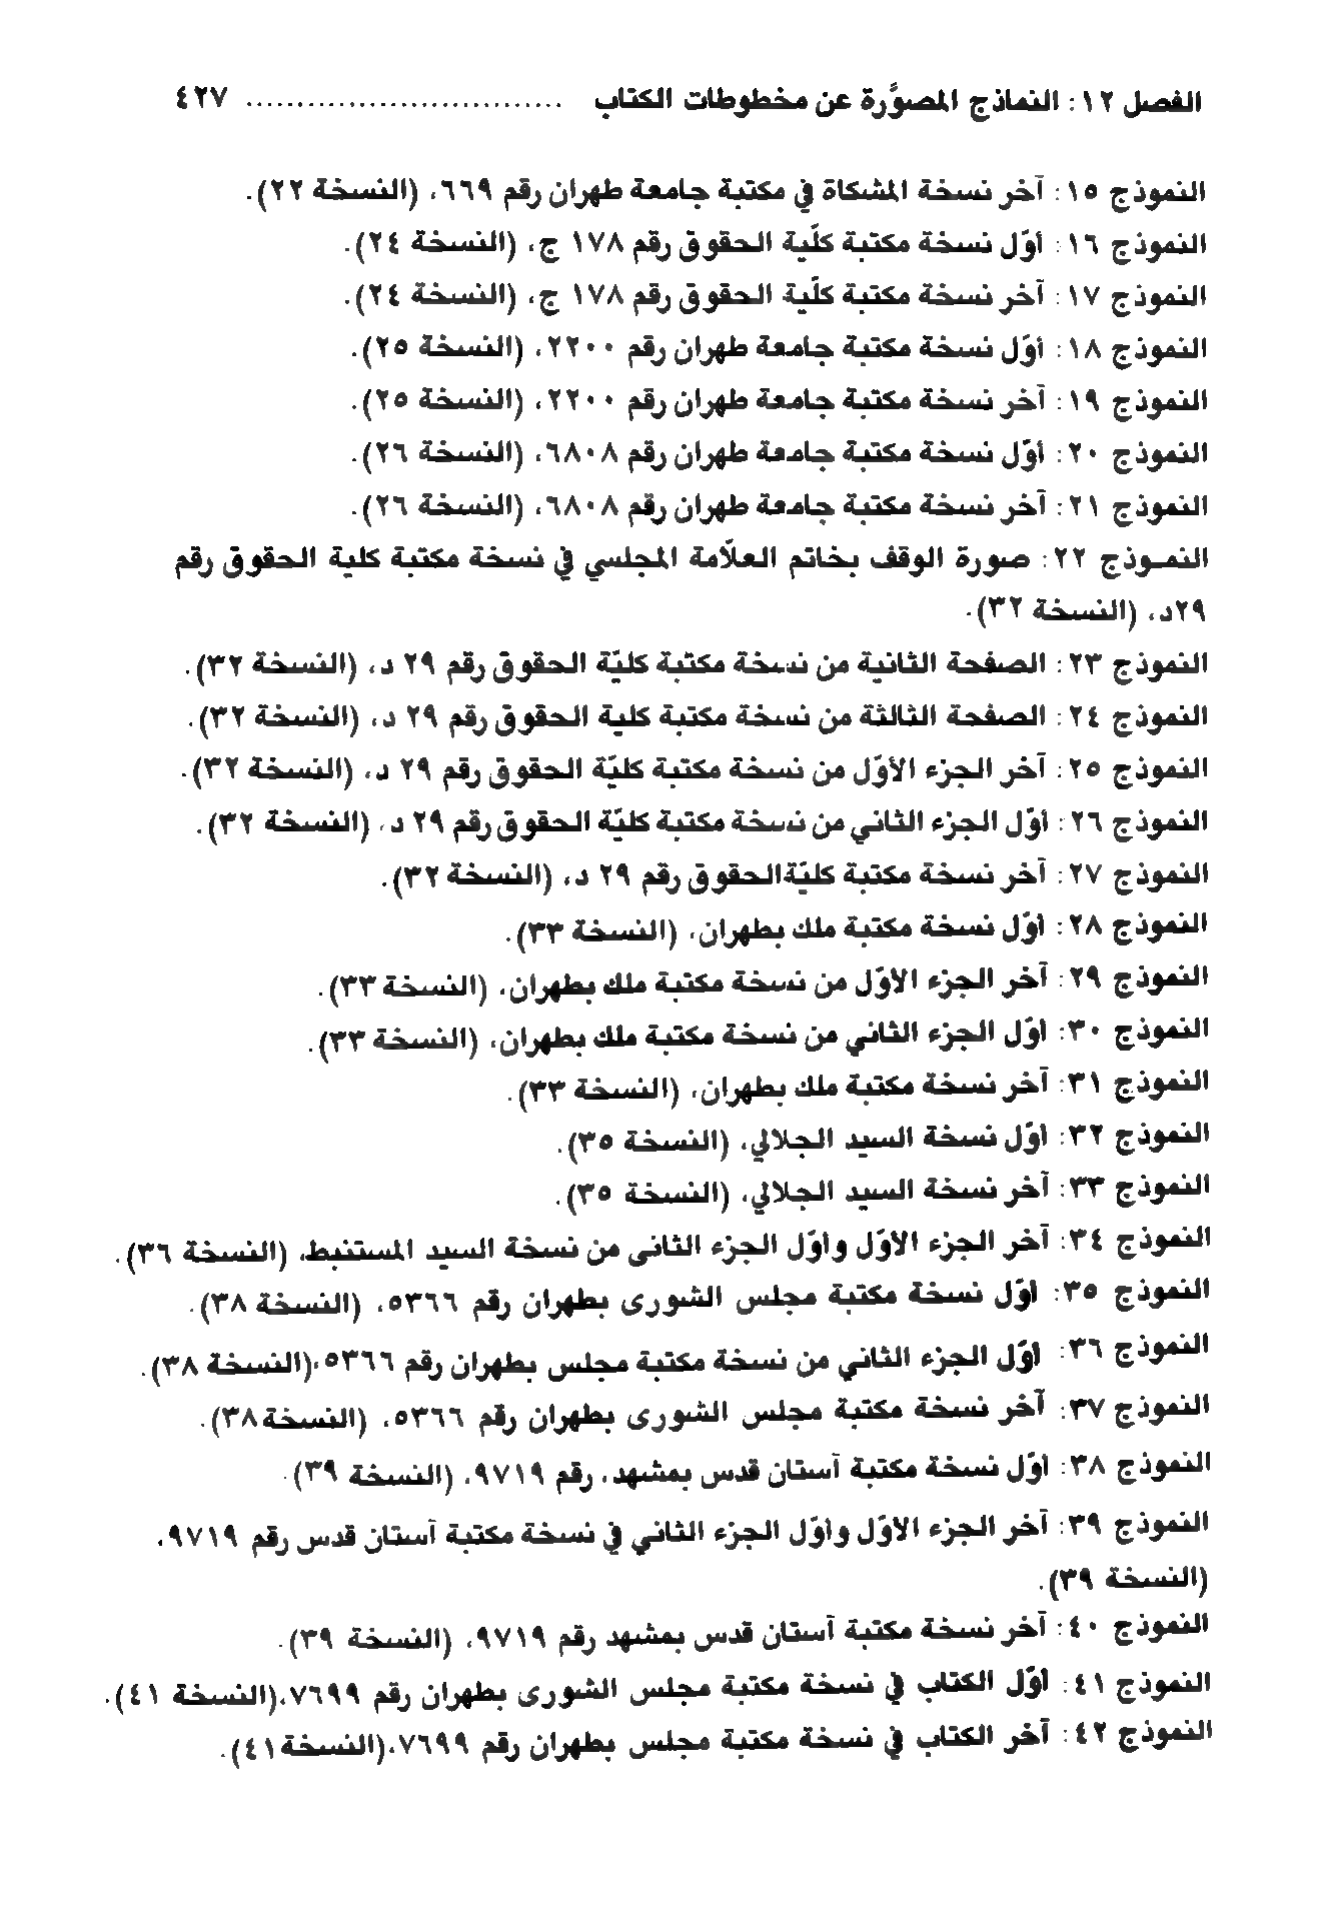 الفصل ١٢: النماذج المصوَّرة عن مخطوطات الكتاب .............................. ٤٢٧
النموذج ١٥: آخر نسخة المشكاة في مكتبة جامعة طهران رقم ٦٦٩، (النسخة ٢٢).
النموذج ١٦: أوّل نسخة مكتبة كلّية الحقوق رقم ١٧٨ ج، (النسخة ٢٤).
النموذج ١٧: آخر نسخة مكتبة كلّية الحقوق رقم ١٧٨ ج، (النسخة ٢٤).
النموذج ١٨: أوّل نسخة مكتبة جامعة طهران رقم ٢٢٠٠، (النسخة ٢٥).
النموذج ١٩: آخر نسخة مكتبة جامعة طهران رقم ٢٢٠٠، (النسخة ٢٥).
النموذج ٢٠: أوّل نسخة مكتبة جامعة طهران رقم ٦٨٠٨، (النسخة ٢٦).
النموذج ٢١: آخر نسخة مكتبة جامعة طهران رقم ٦٨٠٨، (النسخة ٢٦).
النمـوذج ٢٢: صورة الوقف بخاتم العلاّمة المجلسي في نسخة مكتبة كلية الحقوق رقم
٢٩د، (النسخة ٣٢).
النموذج ٢٣: الصفحة الثانية من نسخة مكتبة كليّة الحقوق رقم ٢٩ د، (النسخة ٣٢).
النموذج ٢٤: الصفحة الثالثة من نسخة مكتبة كلية الحقوق رقم ٢٩ د، (النسخة ٣٢).
النموذج ٢٥: آخر الجزء الأوّل من نسخة مكتبة كليّة الحقوق رقم ٢٩ د، (النسخة ٣٢).
النموذج ٢٦: أوّل الجزء الثاني من نسخة مكتبة كليّة الحقوق رقم ٢٩ د، (النسخة ٣٢).
النموذج ٢٧: آخر نسخة مكتبة كليّةالحقوق رقم ٢٩ د، (النسخة ٣٢).
النموذج ٢٨: أوّل نسخة مكتبة ملك بطهران، (النسخة ٣٣).
النموذج ٢٩: آخر الجزء الأوّل من نسخة مكتبة ملك بطهران، (النسخة ٣٣).
النموذج ٣٠: أوّل الجزء الثاني من نسخة مكتبة ملك بطهران، (النسخة ٣٣).
النموذج ٣١: آخر نسخة مكتبة ملك بطهران، (النسخة ٣٣).
النموذج ٣٢: أوّل نسخة السيد الجلالي، (النسخة ٣٥).
النموذج ٣٣: آخر نسخة السيد الجلالي، (النسخة ٣٥).
النموذج ٣٤: آخر الجزء الأوّل وأوّل الجزء الثانى من نسخة السيد المستنبط، (النسخة ٣٦).
النموذج ٣٥: أوّل نسخة مكتبة مجلس الشورى بطهران رقم ٥٣٦٦، (النسخة ٣٨).
النموذج ٣٦: أوّل الجزء الثاني من نسخة مكتبة مجلس بطهران رقم ٥٣٦٦،(النسخة ٣٨).
النموذج ٣٧: آخر نسخة مكتبة مجلس الشورى بطهران رقم ٥٣٦٦، (النسخة٣٨).
النموذج ٣٨: أوّل نسخة مكتبة آستان قدس بمشهد، رقم ٩٧١٩، (النسخة ٣٩).
النموذج ٣٩: آخر الجزء الأوّل وأوّل الجزء الثاني في نسخة مكتبة آستان قدس رقم ٩٧١٩،
(النسخة ٣٩).
النموذج ٤٠: آخر نسخة مكتبة آستان قدس بمشهد رقم ٩٧١٩، (النسخة ٣٩).
النموذج ٤١: أوّل الكتاب في نسخة مكتبة مجلس الشورى بطهران رقم ٧٦٩٩،(النسخة ٤١).
النموذج ٤٢: آخر الكتاب في نسخة مكتبة مجلس بطهران رقم ٧٦٩٩،(النسخة٤١).